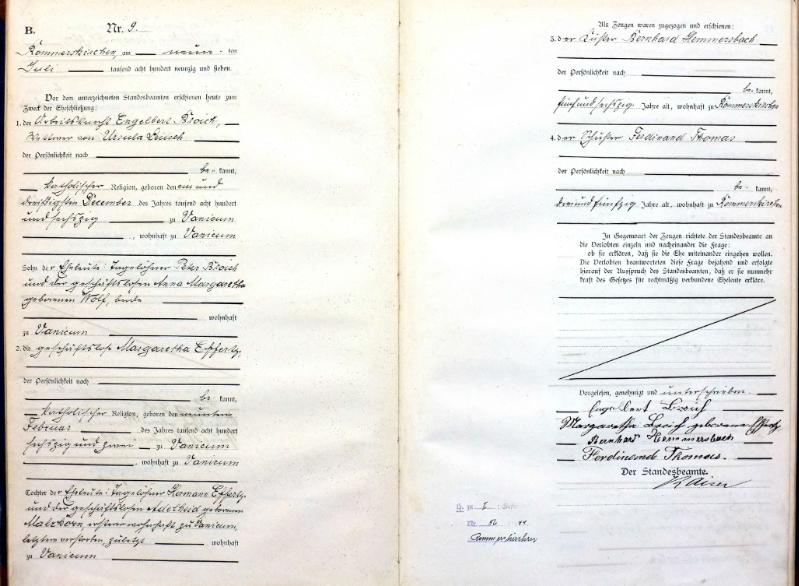 B. Nr. 9.
Rommerskirchen, am neun ten
Juli tausend acht hundert neunzig und sieben.
Vor dem unterzeichneten Standesbeamten erschienen heute zum
Zweck der Eheschließung:
1. der Engelbert Broich,
Wittwer von Ursula
der Persönlichkeit nach
be kannt,
katholischer Religion, geboren den ein und
dreißigsten December des Jahres tausend acht hundert
und sechszig zu Vanicum
, wohnhaft zu Vanicum
Sohn der Eheleute: Tagelöhner Peter Broich
und der geschäftslosen Anna Margaretha
geborenen Wolf, beide
wohnhaft
zu Vanicum
2. die geschäftslose Margaretha Effertz,
der Persönlichkeit nach
be kannt,
katholischer Religion, geboren den neunten
Februar des Jahres tausend acht hundert
sechszig und zwei zu Vanicum
, wohnhaft zu Vanicum
Tochter der Eheleute: Tagelöhner Hermann Effertz
und der geschäftslosen Adelheid geborenen
ersterer wohnhaft zu Vanicum,
letztere verstorben, zuletzt wohnhaft
zu Vanicum
Als Zeugen waren zugezogen und erschienen:
3. der Küster Bernhard Hemmersbach
der Persönlichkeit nach
be kannt,
fünf und sechszig Jahre alt, wohnhaft zu Rommerskirchen
4. der Schuster Ferdinand Thomas
der Persönlichkeit nach
be kannt,
drei und fünfzig Jahre alt, wohnhaft zu Rommerskirchen
In Gegenwart der Zeugen richtete der Standesbeamte an
die Verlobten einzeln und nacheinander die Frage:
ob sie erklären, daß sie die Ehe miteinander eingehen wollen.
Die Verlobten beantworteten diese Frage bejahend und erfolgte
hierauf der Ausspruch des Standesbeamten, daß er sie nunmehr
kraft des Gesetzes für rechtmäßig verbundene Eheleute erkläre.
Vorgelesen, genehmigt und unterschrieben.
Engelbert Broich
Margaretha Broich geborene Effertz
Bernhard Hemmersbach
Ferdinand Thomas.
Der Standesbeamte.